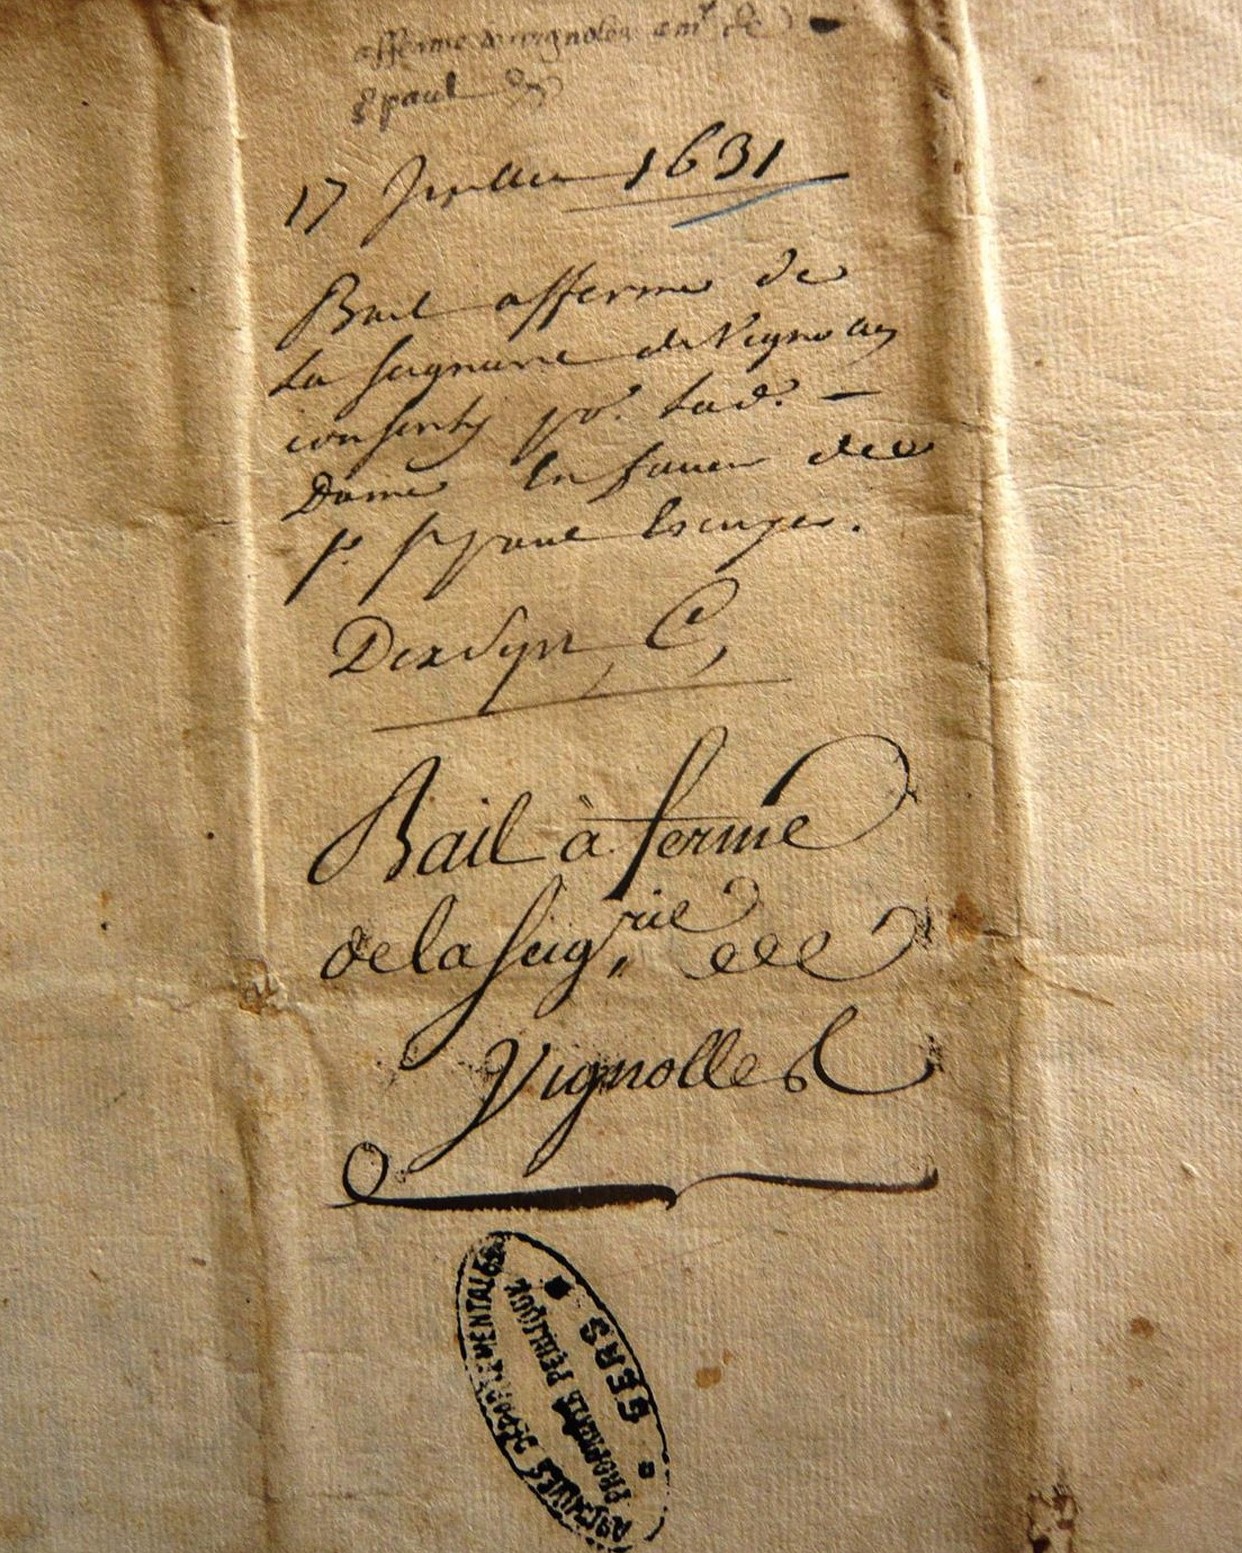 afferme de vignoles a mr de
St paul
17 Juillet 1631
Bail afferme de
La seigneurie de Vignoles
consenty pr. lad. —
Dame en faveur de
sr. st paul Escuyer.
Bail à ferme
de la seigrie de
Vignolles
ARCHIVES DÉPARTEMENTALES
PROPRIÉTÉ PUBLIQUE
GERS